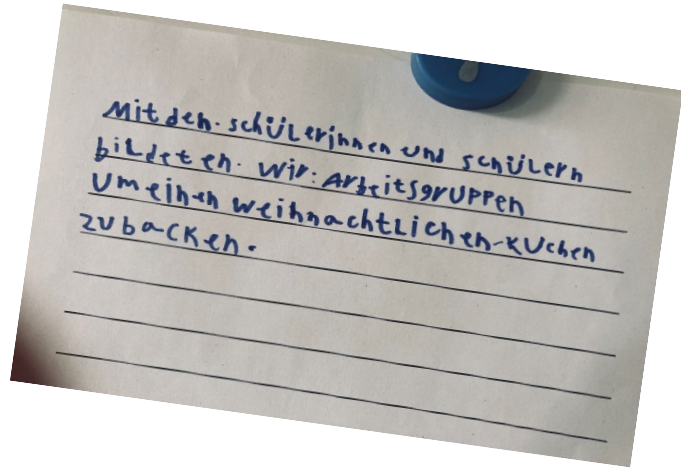 Mit den. schülerinnen und schülern
bildeten. wir: Arbeitsgruppen
Um einen weihnachtlichen-Kuchen
zu backen.